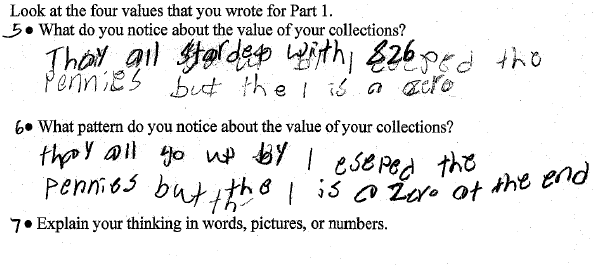 Look at the four values that you wrote for Part 1.
5• What do you notice about the value of your collections?
Thay all starded with, 826 eseped the
Pennies but the 1 is a zero
6• What pattern do you notice about the value of your collections?
thay all go up by 1 eseped the
Pennies but the 1 is a Zero at the end
7• Explain your thinking in words, pictures, or numbers.